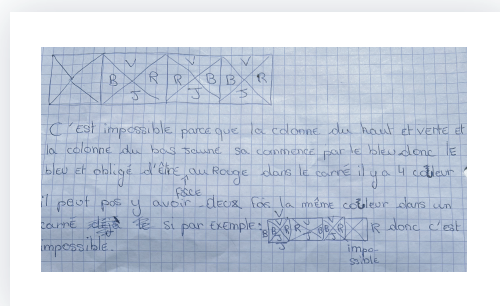 V V V
B R R B B R
J J J
C'est impossible parce que la colonne du haut et verte et
la colonne du bas Jaune sa commence par le bleu donc le
bleu et obligé d'être au Rouge dans le carré il y a 4 couleur
face
il peut pas y avoir deux fois la même couleur dans un
carré si par exemple: B B R R B B R R donc c'est
V
J J J
impo-
ssible
impossible.